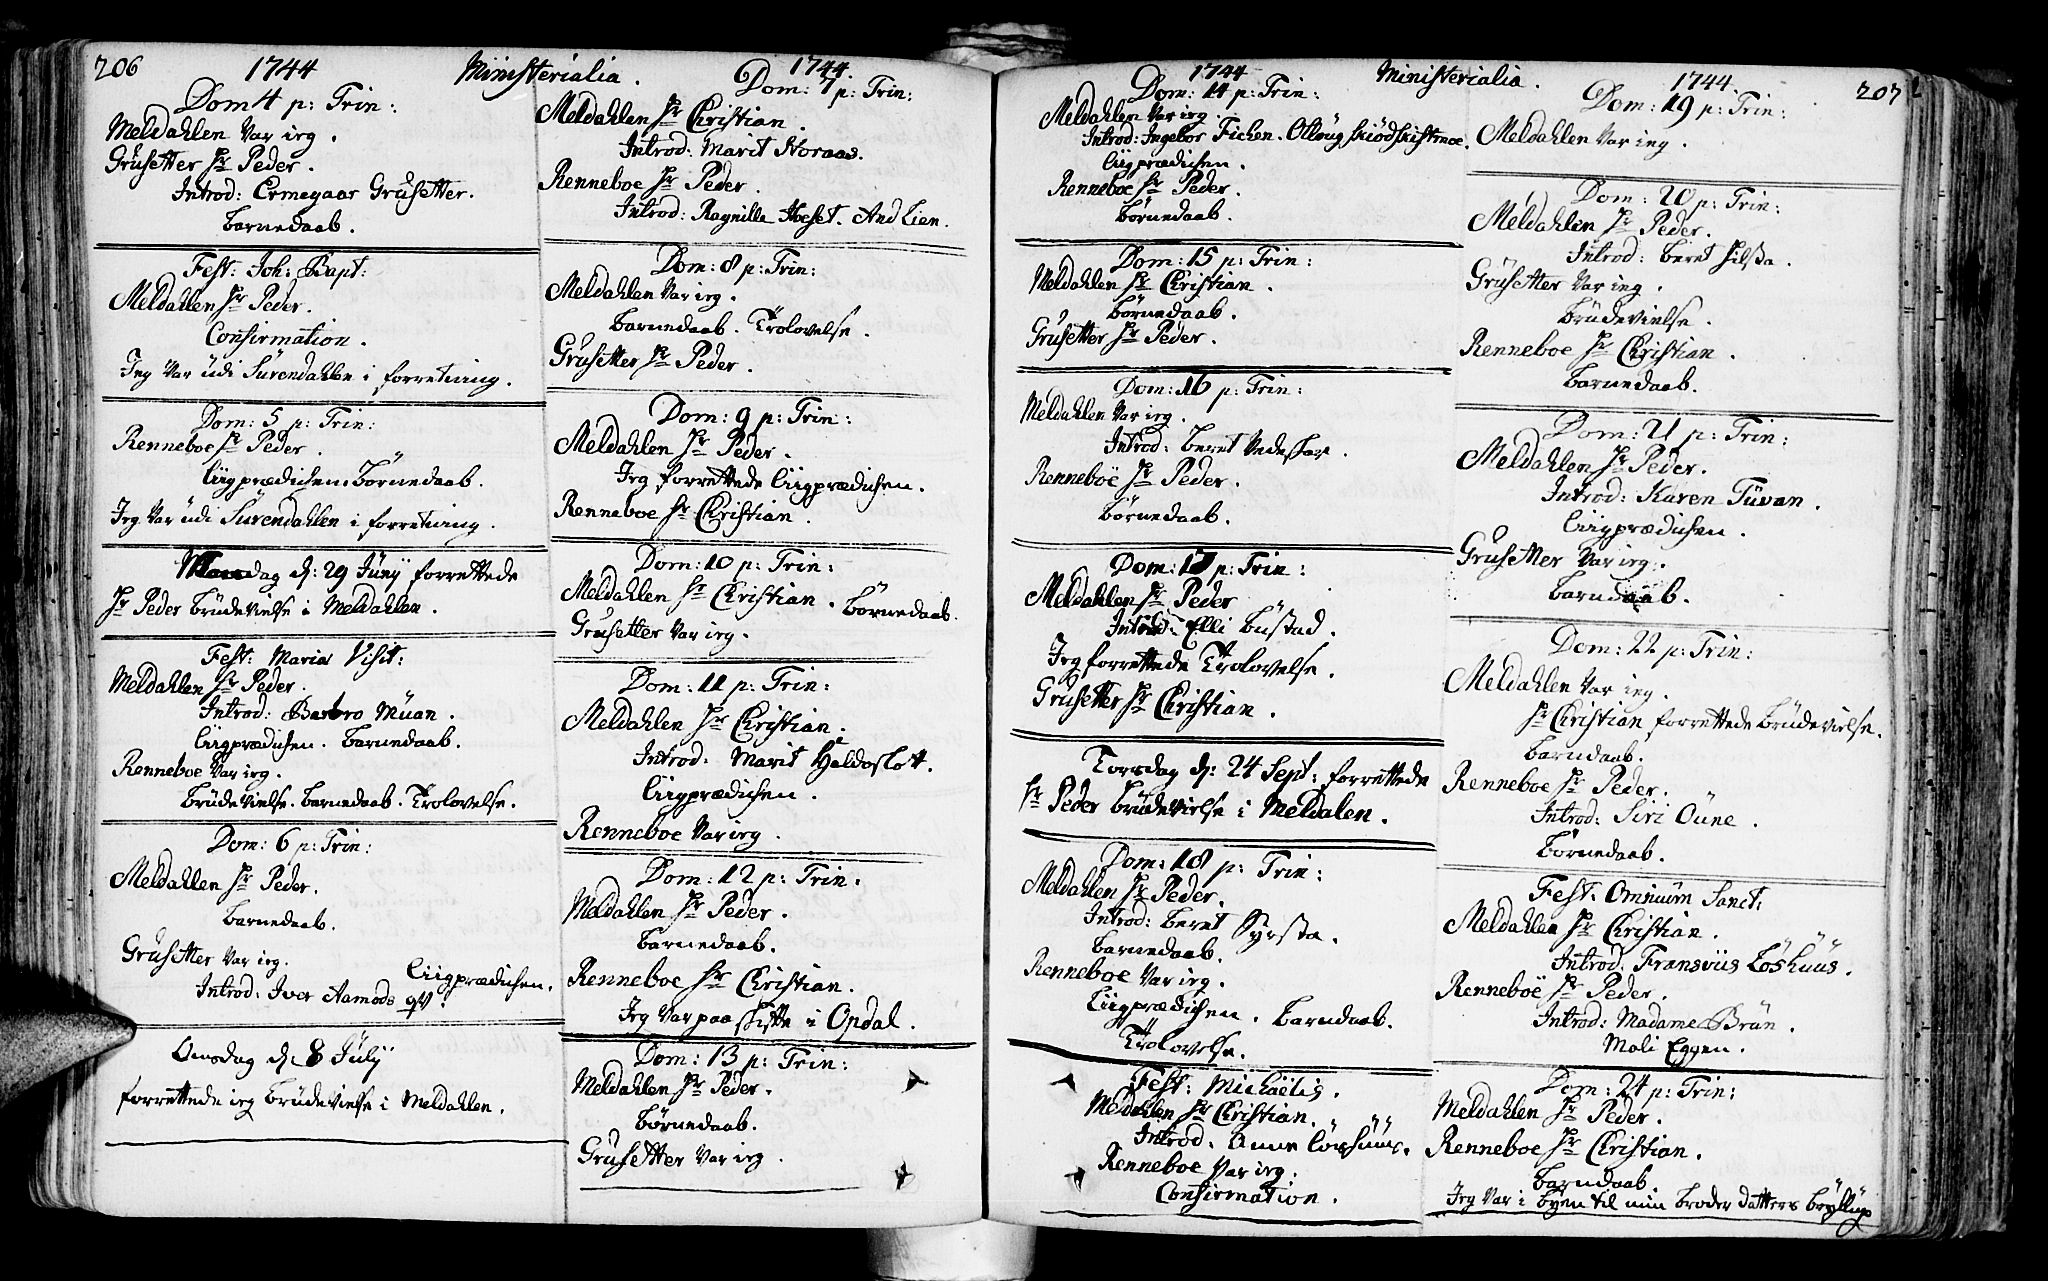 206 1744 Ministerialia. 1744.
Dom 4 p: Trin:
Meldahlen Var ieg.
Grüsetter Hr Peder.
Introd: Ermegaar Grüsetter.
Barnedaab.
Fest: Joh: Bapt:
Meldahlen Hr Peder.
Confirmation.
Jeg Var üdi Sürendahlen i forretning.
Dom: 5 p: Trin:
Renneboe Hr Peder.
Liigprædichen. Börnedaab.
Jeg Var üdi Sürendahlen i forretning.
Mandag d: 29 Jünij forrettede
Hr Peder Brüdevielse i Meldahlen.
Fest: Mariæ Visit:
Meldahlen Hr Peder.
Introd: Barbro Müan.
Liigprædichen. Barnedaab.
Renneboe Var ieg.
Brüdevielse. Barnedaab. Trolovelse.
Dom: 6 p: Trin:
Meldahlen Hr Peder.
Barnedaab.
Grüsetter Var ieg.
Liigprædichen.
Introd: Iver Aamods qv:
Onsdag d. 8 Jülij
forrettede ieg Brüdevielse i Meldahlen.
Dom: 7 p: Trin:
Meldahlen Hr Christian.
Introd: Marit Horaas.
Renneboe Hr Peder.
Introd: Ragnille Hoeset. And Lien.
Dom: 8 p: Trin:
Meldahlen Var ieg.
Barnedaab. Trolovelse.
Grüsetter Hr Peder.
Dom: 9 p: Trin:
Meldahlen Hr Peder.
Jeg forrettede Liigprædichen.
Renneboe Hr Christian.
Dom: 10 p: Trin:
Meldahlen Hr Christian. Börnedaab.
Grusetter Var ieg.
Dom: 11 p: Trin:
Meldahlen Hr Christian.
Introd: Marit Haldoslott.
Liigprædichen.
Renneboe Var ieg.
Dom: 12 p: Trin:
Meldahlen Hr Peder.
Barnedaab.
Renneboe Hr Christian.
Jeg Var paa skifte i Opdal.
Dom: 13 p: Trin:
Meldahlen Hr Peder.
Börnedaab.
Grüsetter Var ieg.
1744 Ministerialia. 1744. 207
Dom: 14 p: Trin:
Meldahlen Var ieg.
Introd: Ingebor Fichen. Olloug
Liigprædichen.
Renneboe Hr Peder.
Börnedaab.
Dom: 15 p: Trin:
Meldahlen Hr Christian.
Börnedaab.
Grüsetter Hr Peder.
Dom: 16 p: Trin:
Meldahlen Var ieg.
Introd: Beret
Renneboe Hr Peder.
Börnedaab.
Dom: 17 p: Trin:
Meldahlen Hr Peder
Introd: Elli Büstad.
Jeg forrettede Trolovelse.
Grüsetter Hr Christian.
Torsdag d: 24 Sept: forrettede
Hr Peder Brüdevielse i Meldalen.
Dom: 18 p: Trin:
Meldahlen Hr Peder.
Introd: Beret Syrsta.
Barnedaab.
Renneboe Var ieg.
Liigprædichen. Barndaab.
Trolovelse.
Fest: Michaëlis.
Meldahlen Hr Christian.
Introd. Anne
Renneboe Var ieg.
Confirmation.
Dom: 19 p: Trin:
Meldahlen Var ieg.
Dom: 20 p: Trin:
Meldahlen Hr Peder.
Introd: Beret Hilsta.
Grüsetter Var ieg.
Brüdevielse.
Renneboe Hr Christian.
Barnedaab.
Dom: 21 p: Trin:
Meldahlen Hr Peder.
Introd: Karen Tüvan.
Liigprædichen.
Grusetter Var ieg.
Barndaab.
Dom: 22 p: Trin:
Meldahlen Var ieg.
Hr Christian forrettede Brüdevielse.
Barndaab.
Renneboe Hr Peder.
Introd: Siri Oüne.
Börnedaab.
Fest. Omnium Sanct:
Meldahlen Hr Christian.
Introd: Fransviis Löshuus.
Renneboe Hr Peder.
Introd: Madame Brün.
Mali Eggen.
Dom: 24 p: Trin:
Meldahlen Hr Peder.
Renneboe Hr Christian.
Barndaab.
Jeg Var i Byen til min Broder datters Bryllup